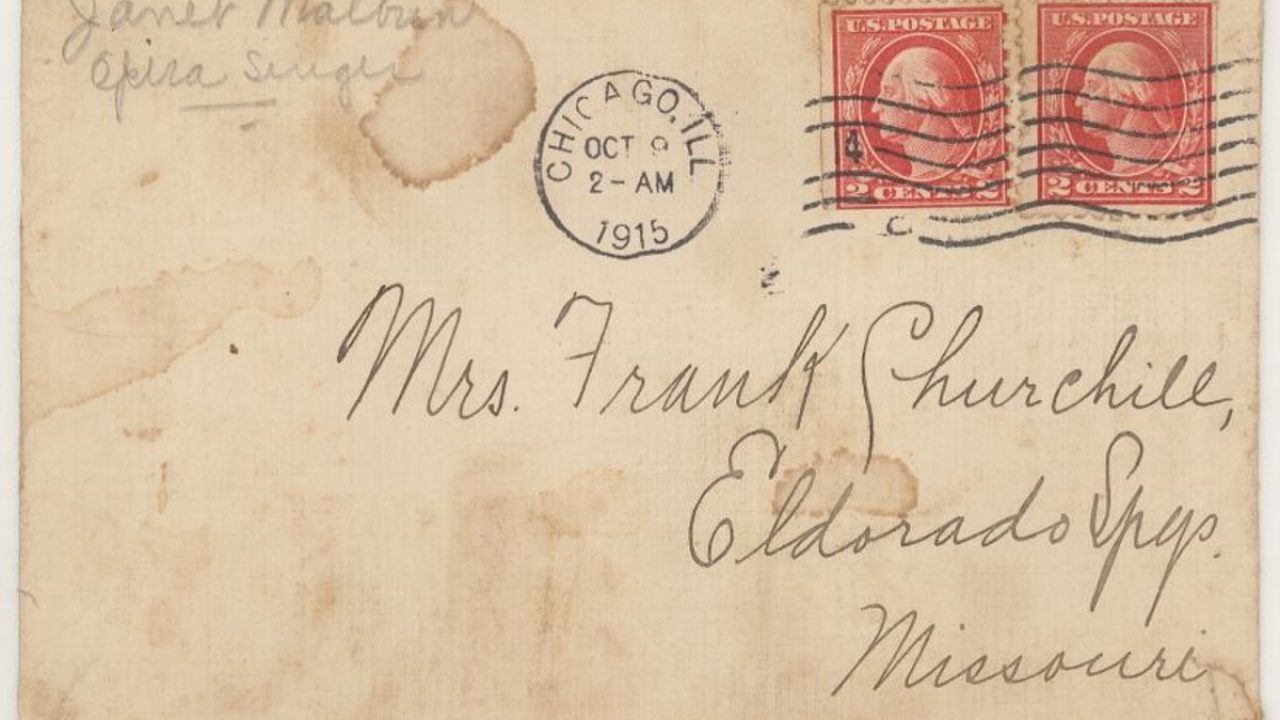 Janet Malbun
Opera Singer
CHICAGO, ILL
OCT 9
2-AM
1915
U.S. POSTAGE
2 CENTS 2
U.S. POSTAGE
2 CENTS 2
4
C
Mrs. Frank Churchill,
Eldorado Spgs.
Missouri